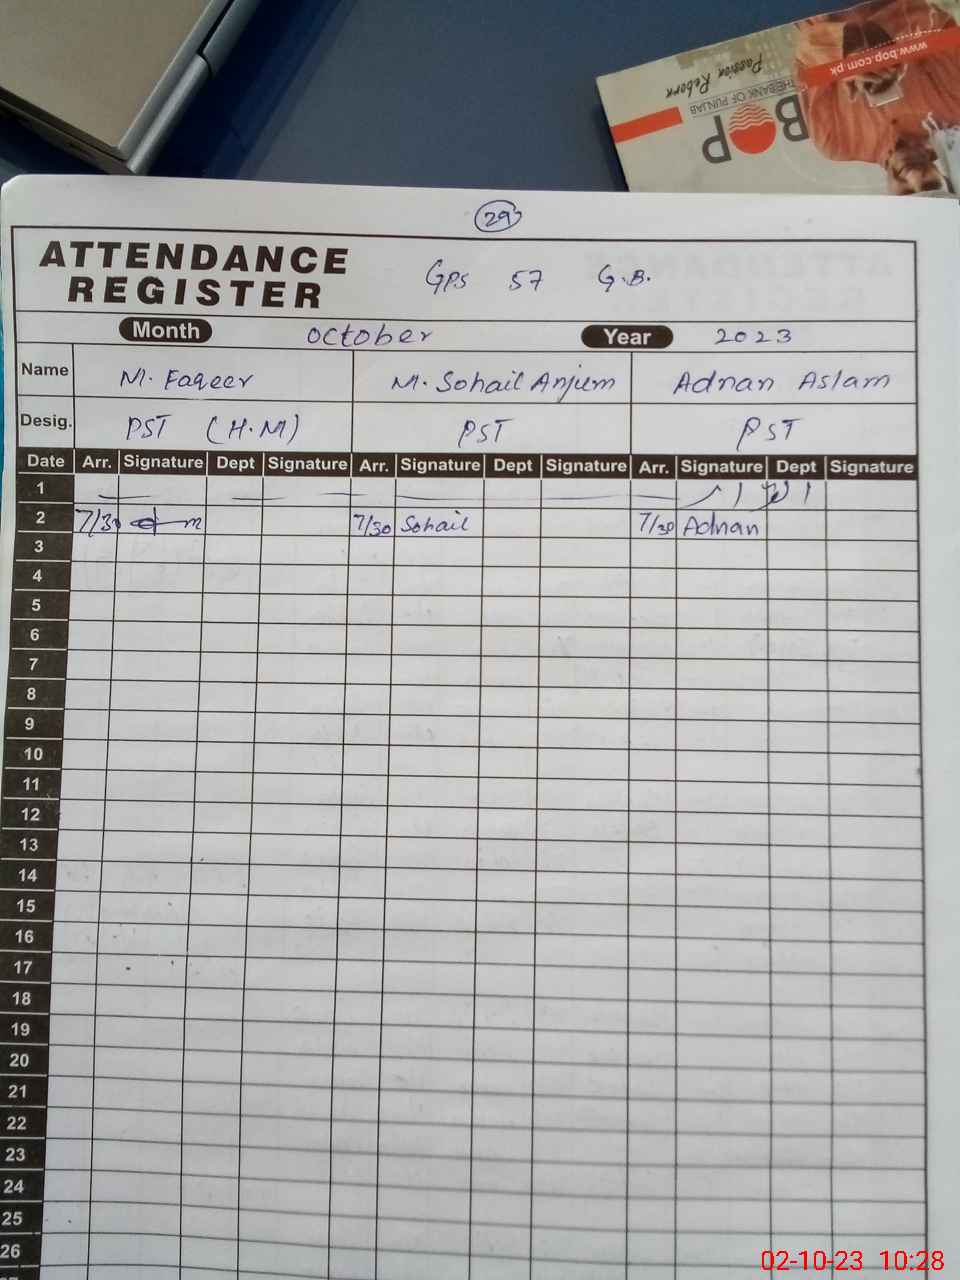 www.bop.com.pk
Passion Reborn
THE BANK OF PUNJAB
BOP
29
ATTENDANCE
REGISTER
GPS 57 G.B.
Month October Year 2023
Name M. Faqeer M. Sohail Anjum Adnan Aslam
Desig. PST (H.M) PST PST
Date Arr. Signature Dept Signature Arr. Signature Dept Signature Arr. Signature Dept Signature
1
2 7/30 7/30 Sohail 7/30 Adnan
3
4
5
6
7
8
9
10
11
12
13
14
15
16
17
18
19
20
21
22
23
24
25
26
02-10-23 10:28